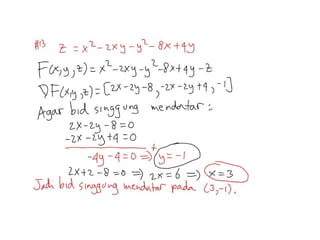 #13 z = x²-2xy-y²-8x+4y
F(x,y,z)=x²-2xy-y²-8x+4y-z
DF(x,y,z)=[2x-2y-8,-2x-2y+4,-1]
Agar bid singgung mendatar :
2x-2y-8=0
-2x-2y+4=0
+
-4y-4=0 ⇒ y=-1
2x+2-8=0 ⇒ 2x=6 ⇒ x=3
Jadi bid singgung mendatar pada (3,-1).